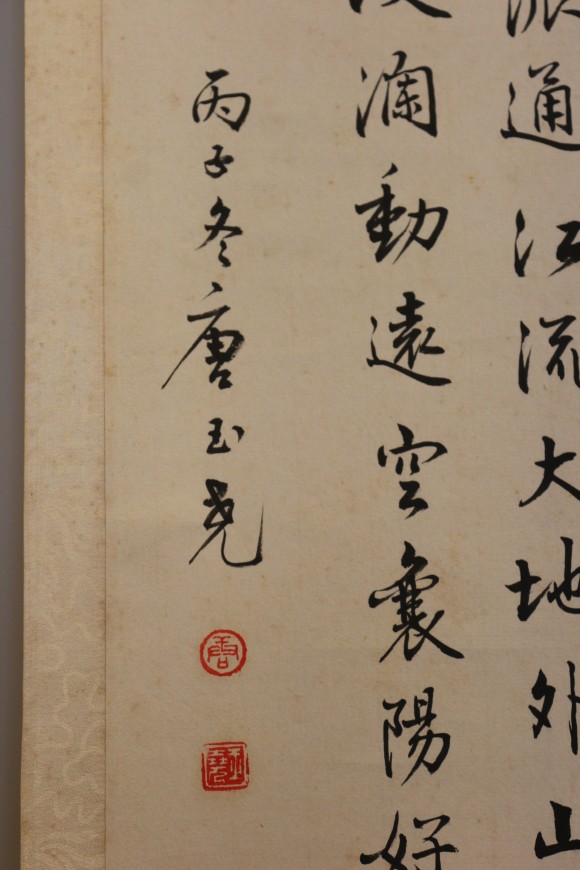 派通江流大地外山
波瀾動遠空襄陽好
丙子冬唐玉尧
唐